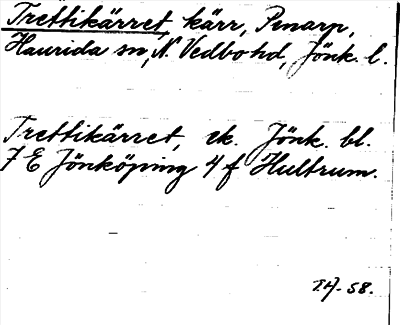 Trettikärret, kärr, Penarp,
Haurida sn, N. Vedbo hd, Jönk. l.
Trettikärret, ek. Jönk. bl.
7 E Jönköping 4 f Hultrum.
-58.